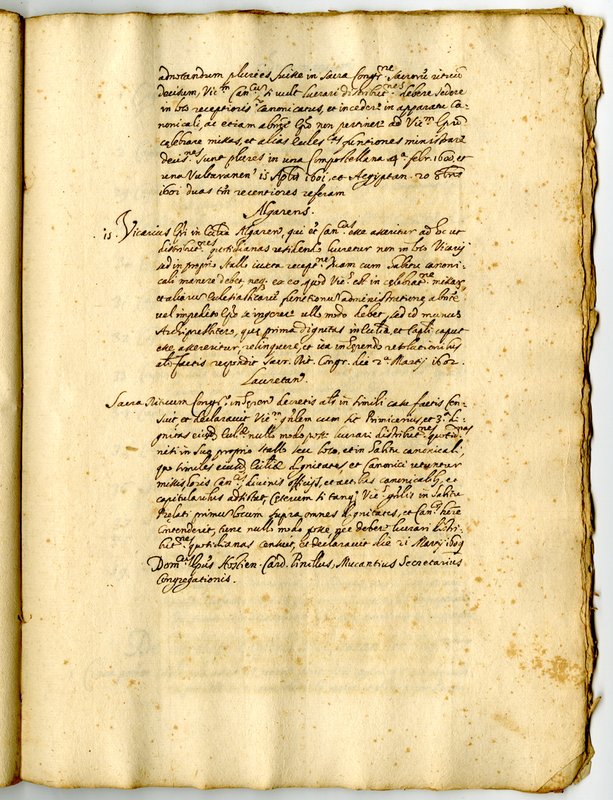 adnotandum pluries fuisse in Sacra Congr.ne Sacror. rituu
decisum, Vic.m Can.cus si vult lucrari distribut.nes debere sedere
in loco receptionis canonicatus, et incedere in apparatu Ca-
nonicali, ac etiam absnte Epo non pertinere ad Vic.m Gnrlem
celebrare missas, et alias Eccles.cas functiones ministrare
decis.nes sunt plures in una Compostellana 4.a febr. 1602, et
una Vulturanen 15 Aplis 1601, et Aegiptan. 20 8bris
1601 duas tm recentiores referam
Algaren.
is Vicarius Gnlis in Ecclia Algaren, qui et Can.cus esse asseritur ad hoc ut
distribut.nes quotidianas residendo lucretur non in loco Vicarij
sed in proprio stallo iuxta recept.nem suam cum habitu canoni-
cali manere debet, neq. ex eo quod Vic.s est in celebrat.ne missar.
et aliarus Ecclesiasticarus functionus administratione, absnte
vel impedito Epo se ingerere ullo modo debet, sed id munus
Archipresbitero, que prima dignitas in Ecclia, et Capli caput
esse asseritur, relinquere, et ita inhærendo resolutionibus
als factis respondit Sacr. Rit. Congr. die 2.a Martij 1602.
Lauretan.
Sacra Rituum Congr.o inhæren decretis als in simili casu factis cen-
suit, et declaravit Vic.m gnlem cum sit Primicerius, et 3.a di-
gnitas eiusd. Eccl.æ nullo modo posse lucrari distribut.nes quotid.nas
nisi in suo proprio stallo seu loco, et in habitu canonicali,
quo similes eiusd. Eccliæ dignitates, et Canonici utuntur
missis, horis can.cis, divinis officijs, et act.bus canonicalib., et
capitularibus adsistat, Ceterum si tanq. Vic. gnlis in habitu
Prelati primu locum supra omnes dignitates, et Can.cos habere
contenderit, tunc nullo modo posse nec debere lucrari distri-
but.nes quotidianas censuit, et declaravit die 21 Martij 1609
Dom.cus Epus Hostien. Card. Pinellus, Mucantius Secretarius
Congregationis.